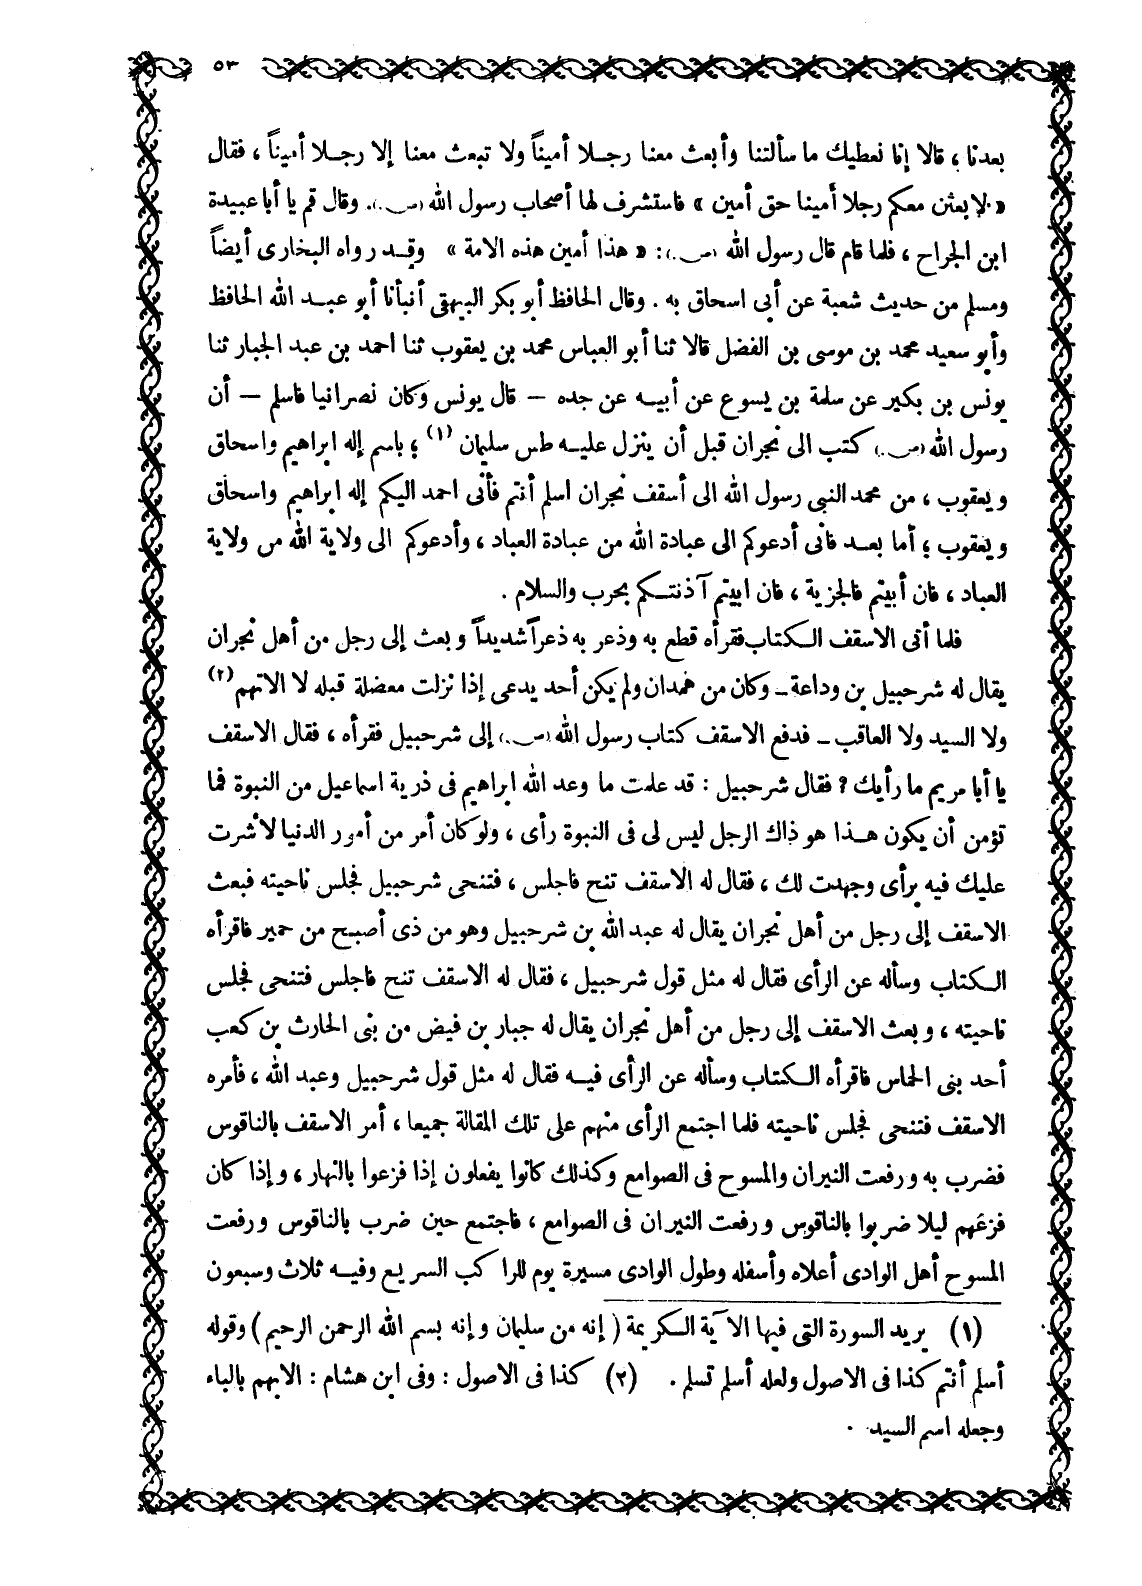 ٥٣
بعدنا ، قالا إنا نعطيك ما سألتنا وأبعث معنا رجلا أميناً ولا تبعث معنا إلا رجلا أميناً ، فقال
« لا بعثن معكم رجلا أمينا حق أمين » فاستشرف لها أصحاب رسول الله (ص.). وقال قم يا أبا عبيدة
ابن الجراح ، فلما قام قال رسول الله (ص.): « هذا أمين هذه الامة » وقد رواه البخارى أيضاً
ومسلم من حديث شعبة عن أبى اسحاق به . وقال الحافظ أبو بكر البيهقى أنبأنا أبو عبد الله الحافظ
وأبو سعيد محمد بن موسى بن الفضل قالا ثنا أبو العباس محمد بن يعقوب ثنا احمد بن عبد الجبار ثنا
يونس بن بكير عن سلمة بن يسوع عن أبيه عن جده – قال يونس وكان نصرانيا فاسلم – أن
رسول الله (ص.) كتب الى نجران قبل أن ينزل عليه طس سليمان (١) ؛ باسم إله ابراهيم واسحاق
ويعقوب ، من محمد النبى رسول الله الى أسقف نجران اسلم أنتم فأنى احمد اليكم إله ابراهيم واسحاق
ويعقوب ؛ أما بعد فانى أدعوكم الى عبادة الله من عبادة العباد ، وأدعوكم الى ولاية الله من ولاية
العباد ، فان أبيتم فالجزية ، فان ابيتم آذنتكم بحرب والسلام .
فلما أتى الاسقف الكتاب فقرأه قطع به وذعر به ذعراً شديداً وبعث إلى رجل من أهل نجران
يقال له شرحبيل بن وداعة – وكان من همدان ولم يكن أحد يدعى إذا نزلت معضلة قبله لا الاتهم (٢)
ولا السيد ولا العاقب – فدفع الاسقف كتاب رسول الله (ص.) إلى شرحبيل فقرأه ، فقال الاسقف
يا أبا مريم ما رأيك ? فقال شرحبيل : قد علمت ما وعد الله ابراهيم فى ذرية اسماعيل من النبوة فما
تؤمن أن يكون هذا هو ذاك الرجل ليس لى فى النبوة رأى ، ولو كان أمر من أمور الدنيا لأشرت
عليك فيه برأى وجهدت لك ، فقال له الاسقف تنح فاجلس ، فتنحى شرحبيل فجلس ناحيته فبعث
الاسقف إلى رجل من أهل نجران يقال له عبد الله بن شرحبيل وهو من ذى أصبح من حمير فاقرأه
الكتاب وسأله عن الرأى فقال له مثل قول شرحبيل ، فقال له الاسقف تنح فاجلس فتنحى فجلس
ناحيته ، وبعث الاسقف إلى رجل من أهل نجران يقال له جبار بن فيض من بنى الحارث بن كعب
أحد بنى الحماس فاقرأه الكتاب وسأله عن الرأى فيه فقال له مثل قول شرحبيل وعبد الله ، فأمره
الاسقف فتنحى فجلس ناحيته فلما اجتمع الرأى منهم على تلك المقالة جميعا ، أمر الاسقف بالناقوس
فضرب به ورفعت النيران والمسوح فى الصوامع وكذلك كانوا يفعلون إذا فزعوا بالنهار ، وإذا كان
فزعهم ليلا ضربوا بالناقوس ورفعت النيران فى الصوامع ، فاجتمع حين ضرب بالناقوس ورفعت
المسوح أهل الوادى أعلاه وأسفله وطول الوادى مسيرة يوم للراكب السريع وفيه ثلاث وسبعون
(١) يريد السورة التى فيها الآية الكريمة ( إنه من سليمان وإنه بسم الله الرحمن الرحيم ) وقوله
أسلم أنتم كذا فى الاصول ولعله أسلم تسلم . (٢) كذا فى الاصول : وفى ابن هشام : الايهم بالياء
وجعله اسم السيد .